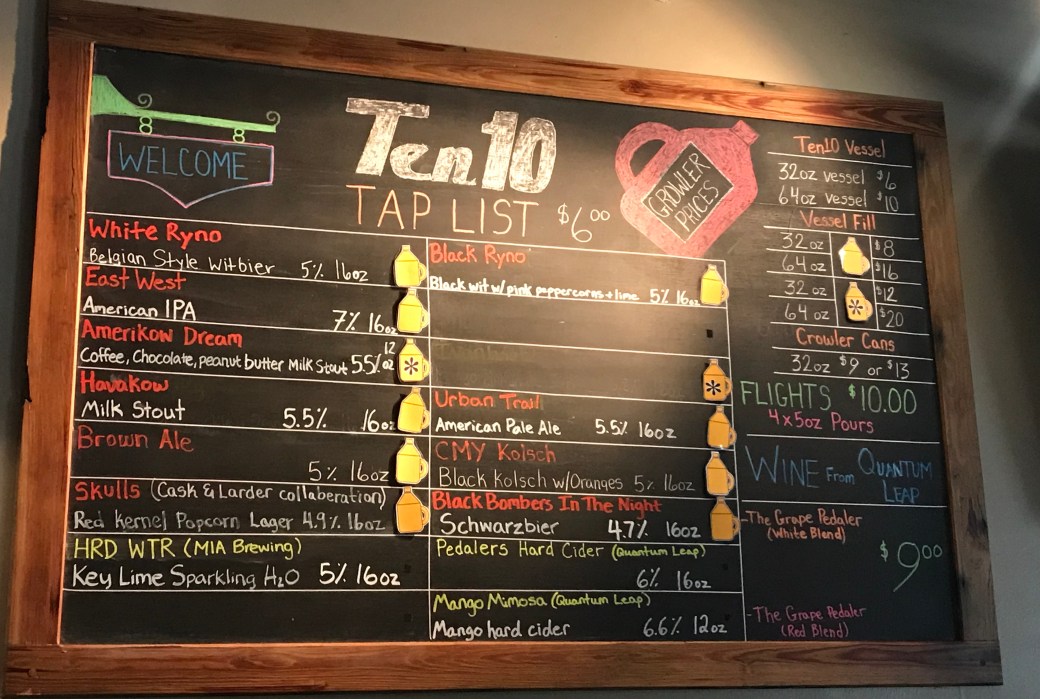 WELCOME
Ten10
TAP LIST $6.00
GROWLER
PRICES
White Ryno
Belgian Style Witbier 5% 16oz
East West
American IPA 7% 16oz
Amerikow Dream
Coffee, Chocolate, peanut butter Milk Stout 5.5% 12oz
Havakow
Milk Stout 5.5% 16oz
Brown Ale
5% 16oz
Skulls (Cask & Larder collaberation)
Red Kernel Popcorn Lager 4.9% 16oz
HRD WTR (MIA Brewing)
Key Lime Sparkling H2O 5% 16oz
Black Ryno
Black wit w/ pink peppercorns + lime 5% 16oz
Urban Trail
American Pale Ale 5.5% 16oz
CMY Kolsch
Black Kolsch w/Oranges 5% 16oz
Black Bombers In The Night
Schwarzbier 4.7% 16oz
Pedalers Hard Cider (Quantum Leap)
6% 16oz
Mango Mimosa (Quantum Leap)
Mango hard cider 6.6% 12oz
Ten10 Vessel
32oz vessel $6
64oz vessel $10
Vessel Fill
32 oz $8
64 oz $16
32 oz $12
64 oz $20
Crowler Cans
32oz $9 or $13
FLIGHTS $10.00
4x5oz Pours
WINE From QUANTUM
LEAP
-The Grape Pedaler
(White Blend)
$9.00
-The Grape Pedaler
(Red Blend)